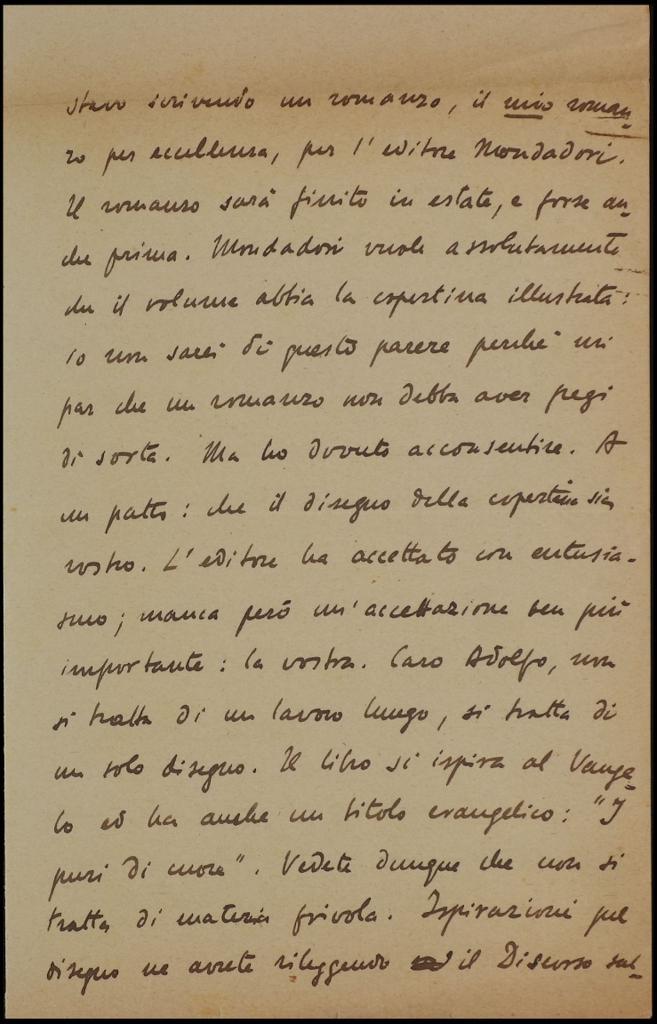 stavo scrivendo un romanzo, il mio roman-
zo per eccellenza, per l'editore Mondadori.
Il romanzo sarà finito in estate, e forse an-
che prima. Mondadori vuole assolutamente
che il volume abbia la copertina illustrata:
io non sarei di questo parere perché mi
par che un romanzo non debba aver fregi
di sorta. Ma ho dovuto acconsentire. A
un patto: che il disegno della copertina sia
vostro. L'editore ha accettato con entusia-
smo; manca però un'accettazione ben più
importante: la vostra. Caro Adolfo, non
si tratta di un lavoro lungo, si tratta di
un solo disegno. Il libro si ispira al Vange-
lo ed ha anche un titolo evangelico: "I
puri di cuore". Vedete dunque che non si
tratta di materia frivola. Ispirazioni pel
disegno ne avrete rileggendo il Discorso sul-